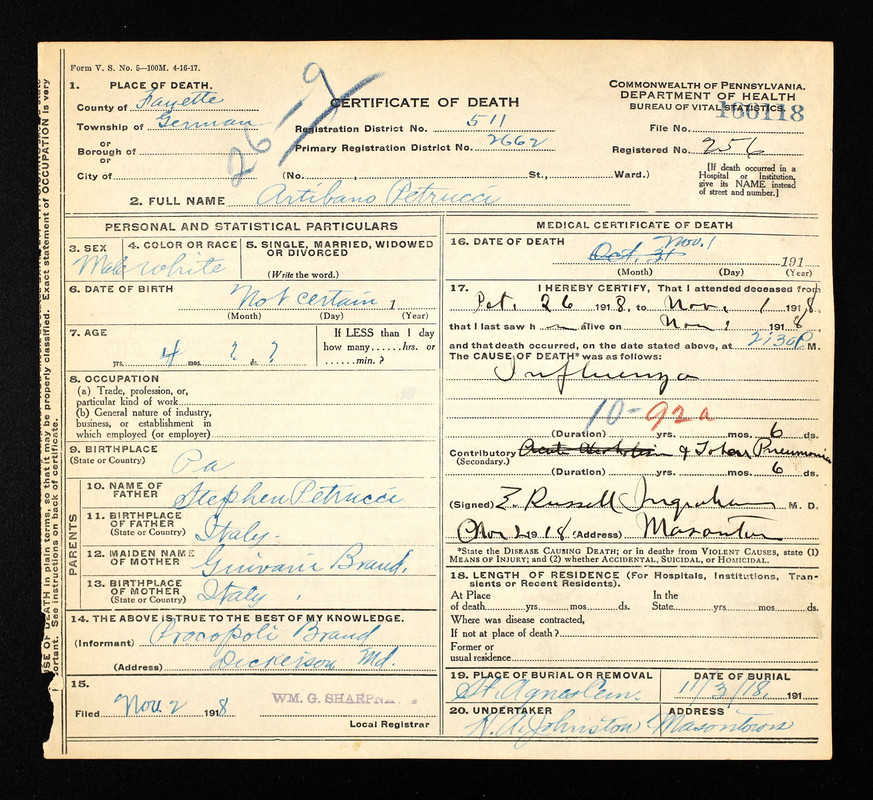 Form V. S. No. 5—100M. 4-16-17.
1. PLACE OF DEATH.
County of Fayette
Township of German
or
Borough of
or
City of
26-9
CERTIFICATE OF DEATH
Registration District No. 511
Primary Registration District No. 2662
(No. , St., Ward.)
COMMONWEALTH OF PENNSYLVANIA.
DEPARTMENT OF HEALTH
BUREAU OF VITAL STATISTICS
File No. 166118
Registered No. 256
[If death occurred in a
Hospital or Institution,
give its NAME instead
of street and number.]
2. FULL NAME Artibano Petrucci
PERSONAL AND STATISTICAL PARTICULARS
3. SEX
Male
4. COLOR OR RACE
White
5. SINGLE, MARRIED, WIDOWED
OR DIVORCED
(Write the word.)
6. DATE OF BIRTH
Not certain 1
(Month) (Day) (Year)
7. AGE
4 yrs. ? mos. ? ds.
If LESS than 1 day
how many ...... hrs. or
...... min. ?
8. OCCUPATION
(a) Trade, profession, or,
particular kind of work
(b) General nature of industry,
business, or establishment in
which employed (or employer)
9. BIRTHPLACE
(State or Country)
Pa
PARENTS
10. NAME OF
FATHER
Stephen Petrucci
11. BIRTHPLACE
OF FATHER
(State or Country)
Italy.
12. MAIDEN NAME
OF MOTHER
Brand.
13. BIRTHPLACE
OF MOTHER
(State or Country)
Italy
14. THE ABOVE IS TRUE TO THE BEST OF MY KNOWLEDGE.
(Informant) Procopoli Brand
(Address) Dickerson Md.
15.
Filed Nov. 2 1918
WM. G. SHARPN
Local Registrar
MEDICAL CERTIFICATE OF DEATH
16. DATE OF DEATH
Oct. 31 Nov. 1 191
(Month) (Day) (Year)
17. I HEREBY CERTIFY, That I attended deceased from
Oct. 26 1918, to Nov. 1 1918,
that I last saw h alive on Nov 1 1918
and that death occurred, on the date stated above, at 2:30 P.M.
The CAUSE OF DEATH* was as follows:
Influenza
10- 92a
(Duration) yrs. mos. 6 ds.
Contributory & Lobar Pneumonia
(Secondary.)
(Duration) yrs. mos. 6 ds.
(Signed) E. Russell Ingraham M. D.
Nov 2 1918 (Address) Masontown
*State the DISEASE CAUSING DEATH; or in deaths from VIOLENT CAUSES, state (1)
MEANS OF INJURY; and (2) whether ACCIDENTAL, SUICIDAL, or HOMICIDAL.
18. LENGTH OF RESIDENCE (For Hospitals, Institutions, Tran-
sients or Recent Residents).
At Place
of death yrs. mos. ds.
In the
State yrs. mos. ds.
Where was disease contracted,
If not at place of death?
Former or
usual residence
19. PLACE OF BURIAL OR REMOVAL
St. Agnes Cem.
DATE OF BURIAL
11/3/18, 191
20. UNDERTAKER
H. A. Johnston
ADDRESS
Masontown
USE OF DEATH in plain terms, so that it may be properly classified. Exact statement of OCCUPATION is very
portant. See instructions on back of certificate.